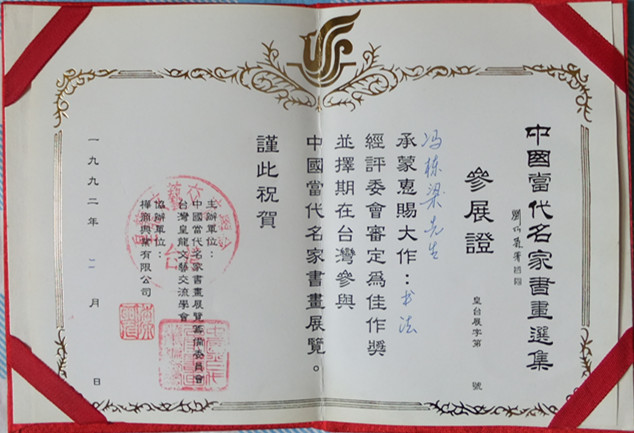 中國當代名家書畫選集
參展證
皇台展字第　　號
冯栋梁先生
承蒙惠賜大作：书法
經評委會審定為佳作獎
並擇期在台灣參與
中國當代名家書畫展覽。
謹此祝賀
主辦單位：
中國當代名家書畫展覽籌備委員會
台灣皇龍文藝交流學會
協辦單位：
有限公司
一九九二年　二　月　　日